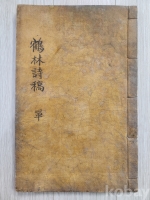 鶴林詩稿
單
kobay